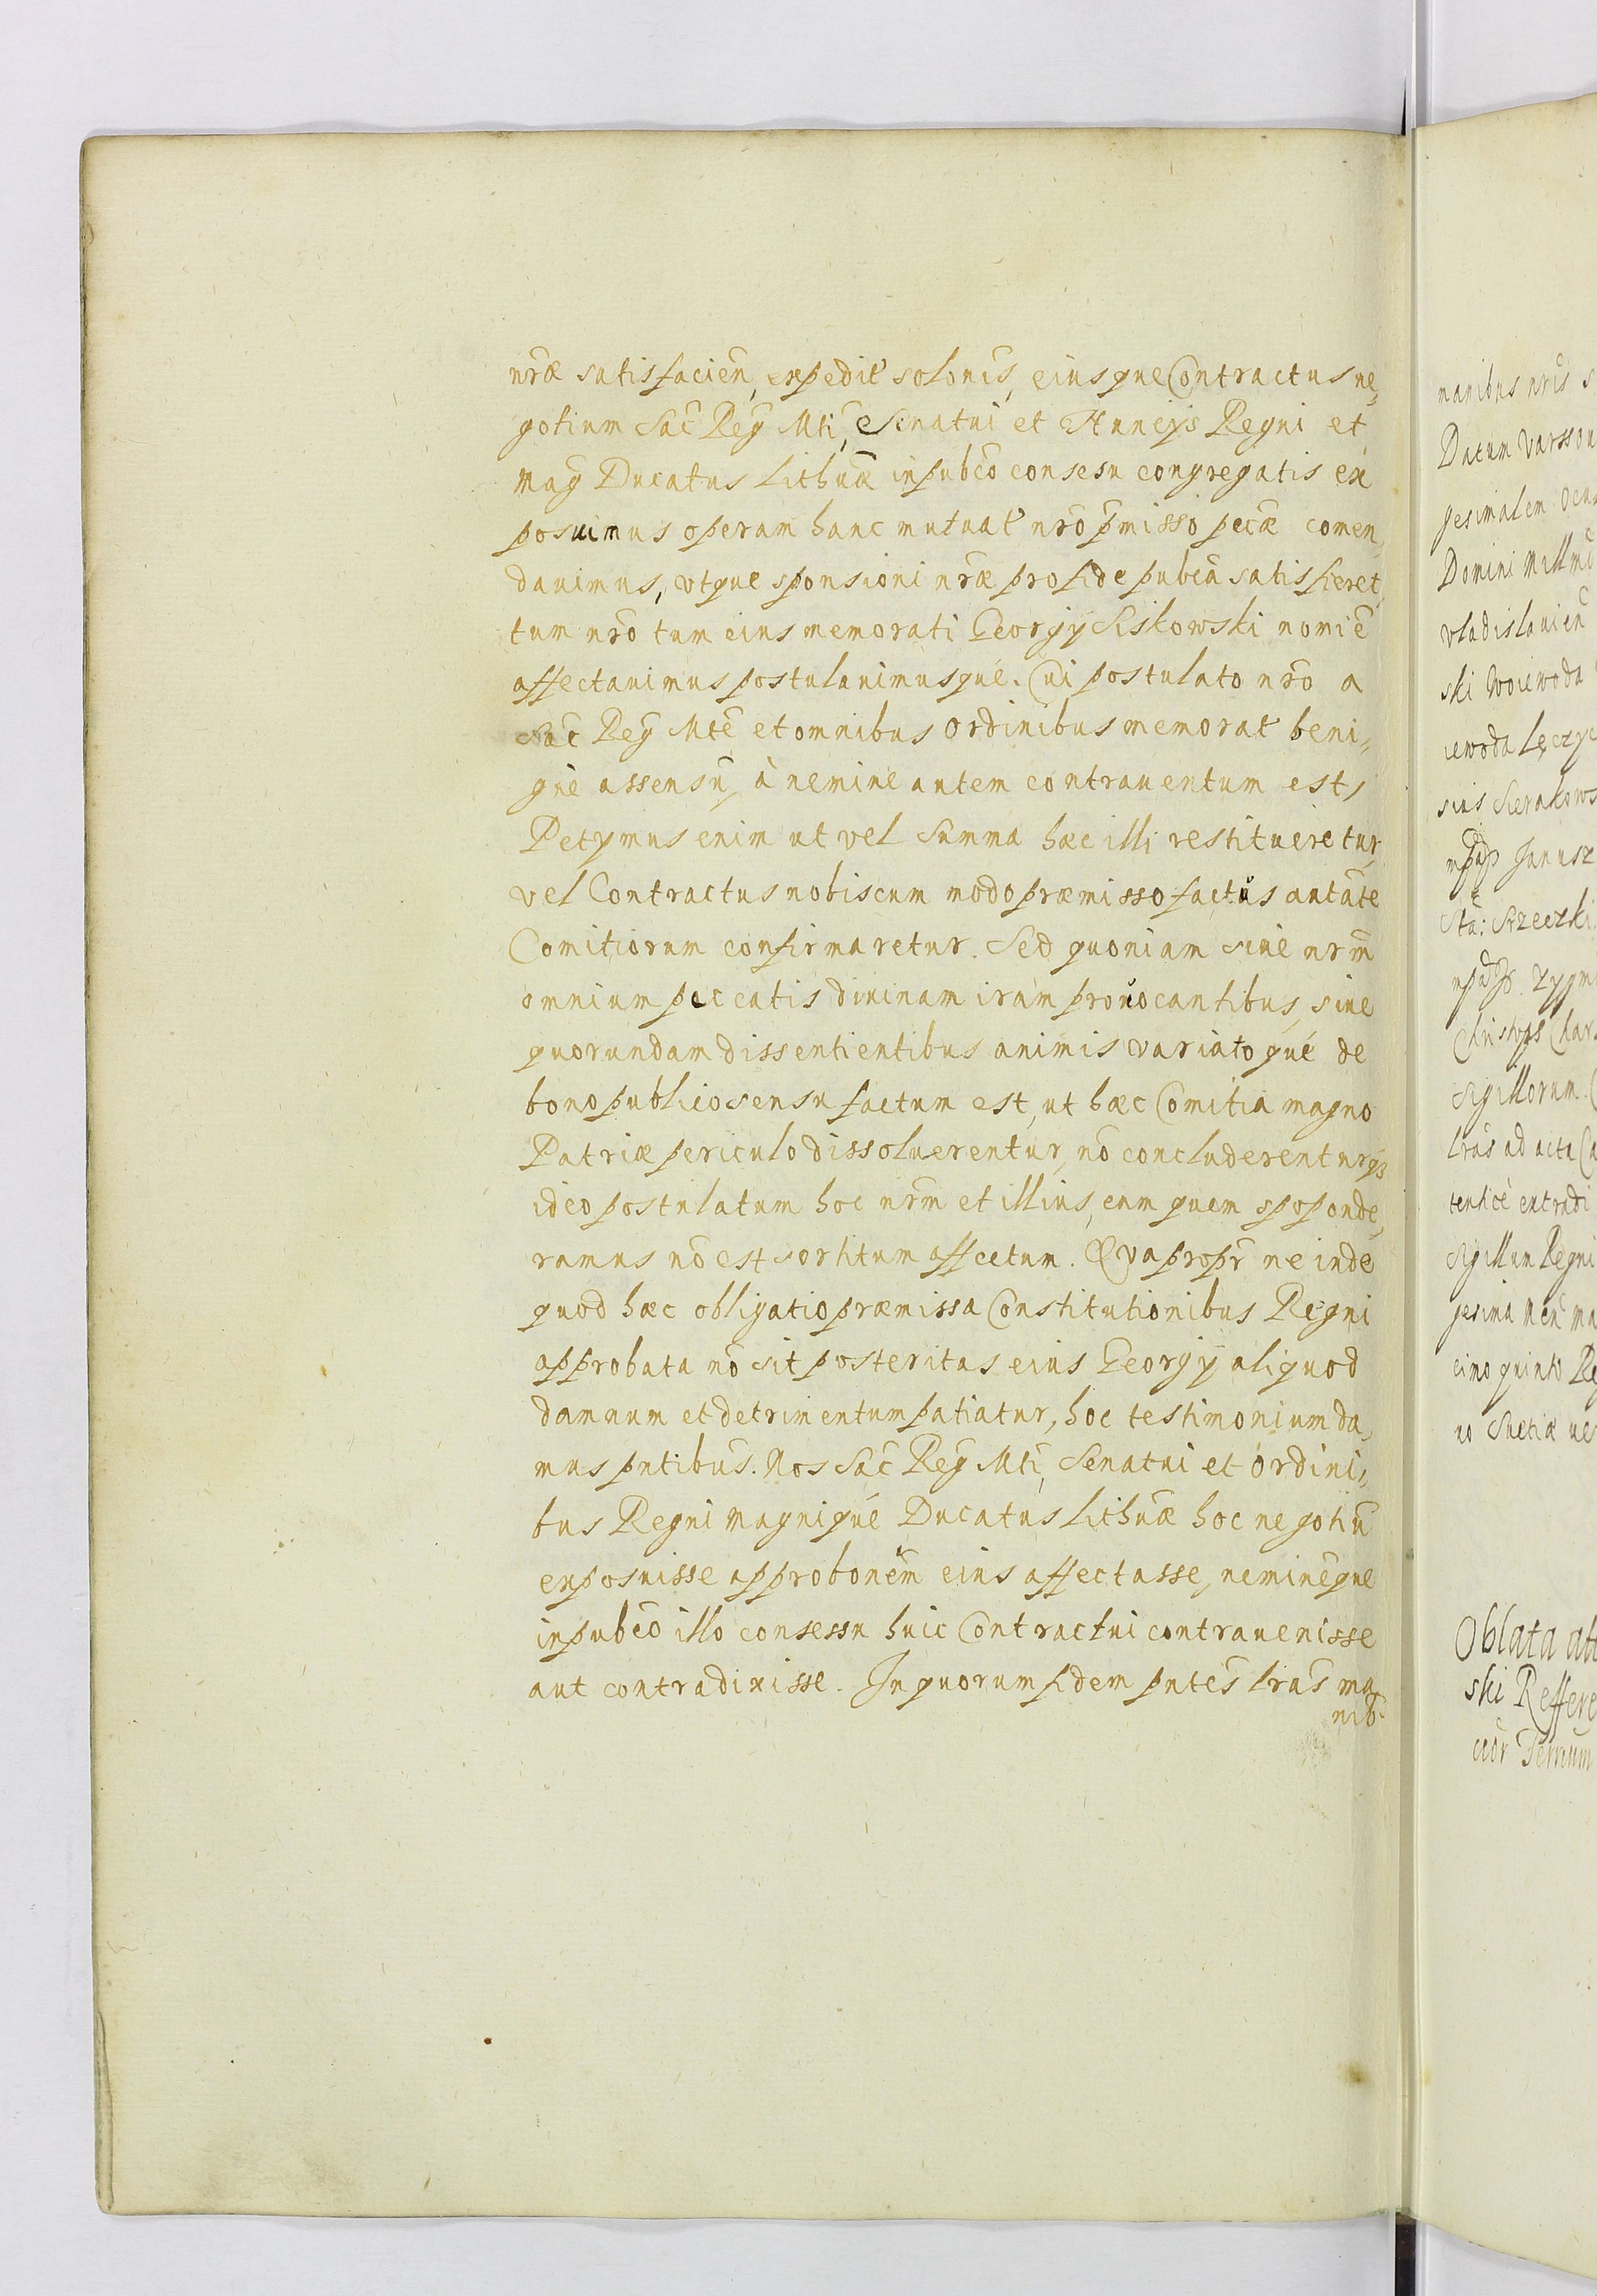 nr̃æ satisfacien̄, expedit̃ solonis̃, eiusque Contractus ne„
gotium Sac̃ Reg̃ Mti, Senatui et Nuncijs Regni et
Mag̃ Ducatus Lithuæ in pubco consesu congregatis ex
posuimus operam hanc mutuat̃ nr̃o p̄misso pecæ comen„
dauimus, vtque sponsioni nr̃æ pro fide pubca satisfieret,
tum nr̃o tum eius memorati Georgij Siskowski nomie
affectauimus postulauimusque. Cui postulato nr̃o a
Sac̃ Reg̃ Mte et omnibus Ordinibus memorat̃ beni„
gne assensũ, à nemine autem contrauentum est,
Petymus enim ut vel Summa hæc illi restitueretur,
vel Contractus nobiscum modo præmisso factus autate
Comitiorum confirmaretur. Sed quoniam siue nrm̃
omnium peccatis diuinam iram prouocantibus, siue
quorundam dissentientibus animis variatoque de
bono publico sensu factum est, ut hæc Comitia magno
Patriæ periculo dissoluerentur, nõ concluderenturqz
ideo postulatum hoc nrm̃ et illius, eum quem sposponde„
ramus nõ est sortitum affectum. Qvapropr̃ ne inde
quod hæc obligatio præmissa Constitutionibus Regni
approbata nõ sit posteritas eius Georgij aliquod
damnum et detrimentum patiatur, hoc testimonium da„
mus pntibus̃. Nos Sac̃ Reg̃ Mti, Senatui et ordini„
bus Regni Magnique Ducatus Lithuæ hoc negotiũ
exposuisse approbonem̃ eius affectasse, neminẽque
in pubco illo consessu huic Contractui contrauenisse
aut contradixisse. In quorum fidem pntes̃ lras̃ ma„
nib.
manibus nris̃ s
Datum Varssou
gesimalem
Domini Millmo
Vladislauien̄
ski Woiewoda
iewoda Lęczyc
sius Sierakows
Janusz
Sta: Strzeczki
Zygm
Christoph Char
Sigillorum
lras̃ ad acta Ca
Sigillum Regni
gesima Men̄ Ma
cimo quinto Re
no Suetiæ ue
Oblata att
ski Reffere